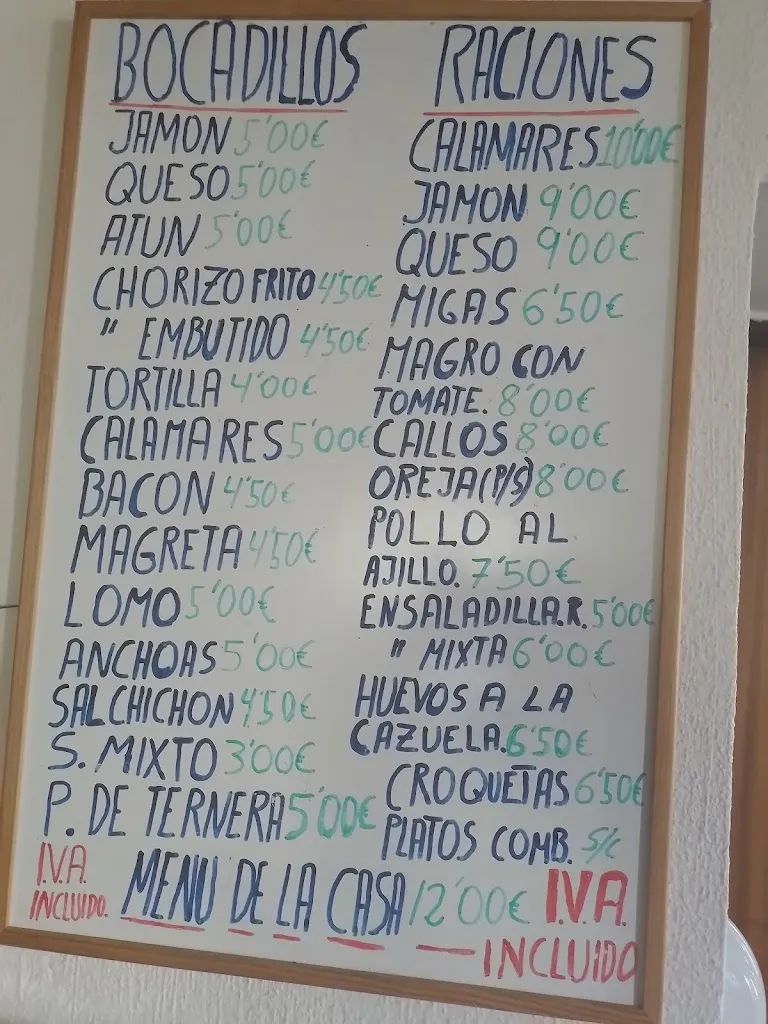 BOCADILLOS
JAMON 5'00€
QUESO 5'00€
ATUN 5'00€
CHORIZO FRITO 4'50€
" EMBUTIDO 4'50€
TORTILLA 4'00€
CALAMARES 5'00€
BACON 4'50€
MAGRETA 4'50€
LOMO 5'00€
ANCHOAS 5'00€
SALCHICHON 4'50€
S. MIXTO 3'00€
P. DE TERNERA 5'00€
RACIONES
CALAMARES 10'00€
JAMON 9'00€
QUESO 9'00€
MIGAS 6'50€
MAGRO CON
TOMATE. 8'00€
CALLOS 8'00€
OREJA (P/S) 8'00€
POLLO AL
AJILLO. 7'50€
ENSALADILLA.R. 5'00€
" MIXTA 6'00€
HUEVOS A LA
CAZUELA. 6'50€
CROQUETAS 6'50€
PLATOS COMB. S/C
I.V.A.
INCLUIDO.
MENU DE LA CASA 12'00€ I.V.A.
INCLUIDO